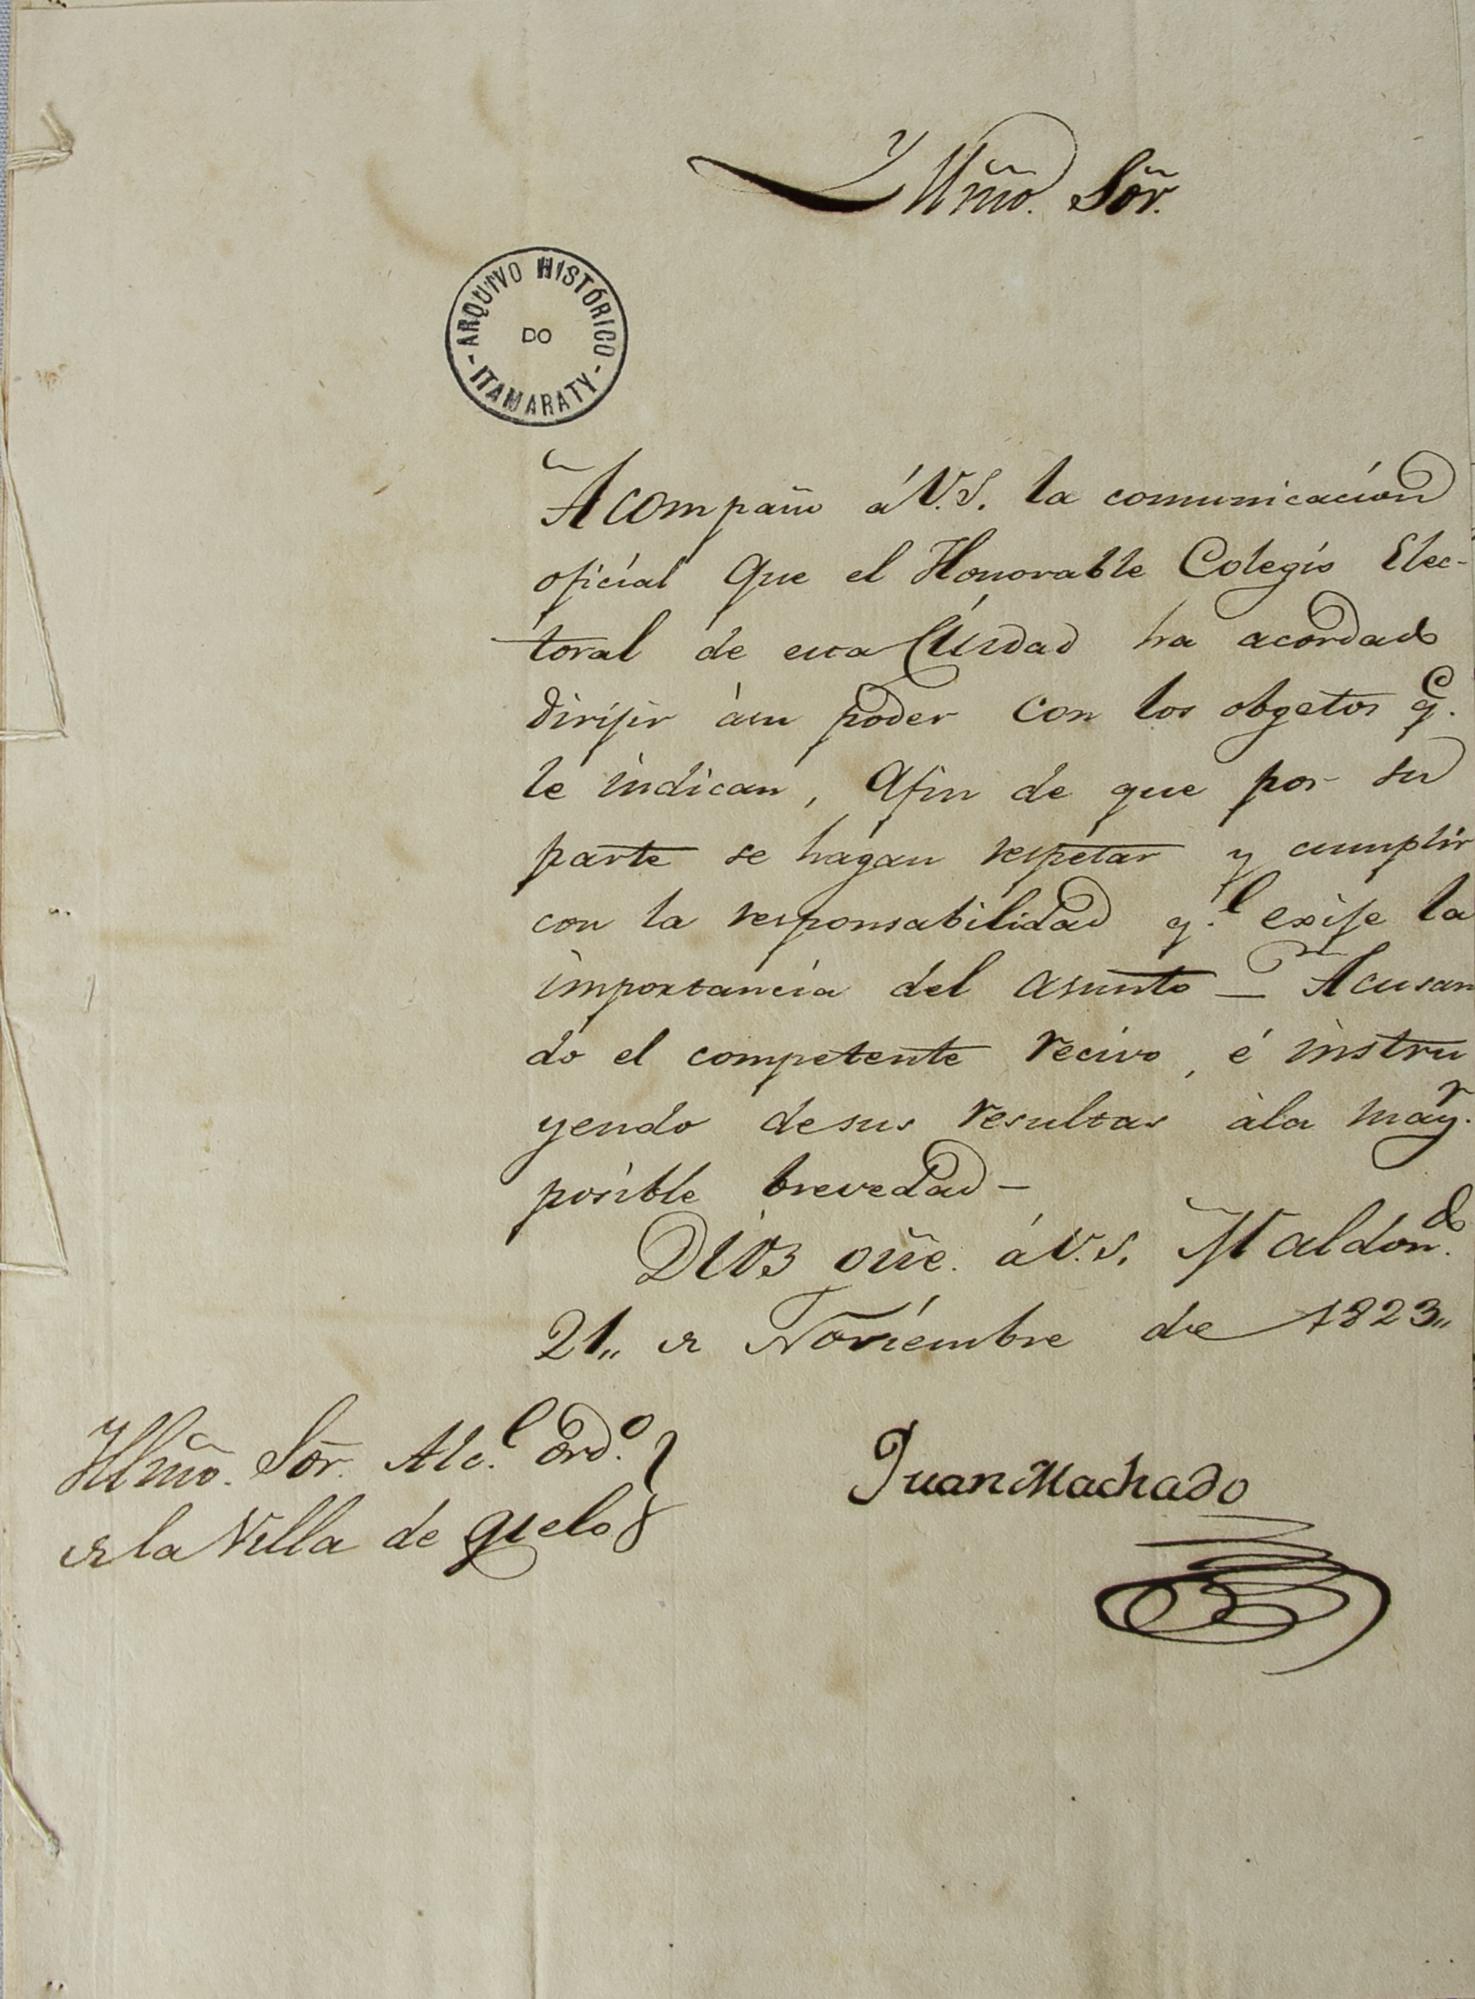 Yllmo. Sõr.
ARQUIVO HISTÓRICO
DO
ITAMARATY
Acompaño á V.S. la comunicación
oficial que el Honorable Colegio Elec-
toral de esta Ciudad ha acordado
dirijir ásu poder con los obgetos q.e
le indican, Afin de que por su
parte se hagan respetar y cumplir
con la responsabilidad q.e exije la
importancia del asunto — Acusan
do el competente recivo, é instru
yendo desus resultas àla may.r
posible brevedad —
Dios gũe. á V.S. Maldon.do
21,, de Noviembre de 1823,,
Yllmo. Sõr. Alc.e Ord.o
de la Villa de
Juan Machado